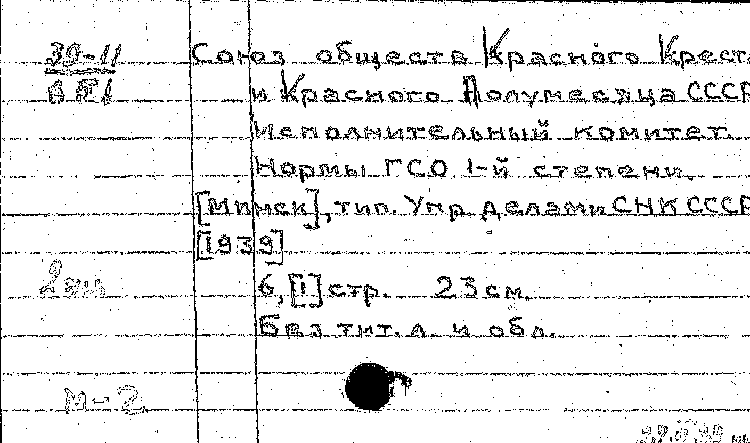 39-11 Союз обществ Красного Креста
и Красного Полумесяца СССР
Исполнительный комитет.
Нормы ГСО 1-й степени.
[Минск], тип. Упр. делами СНК СССР
[1939]
2 экз 6, [1] стр. 23 см.
Без тит. л. и обл.
М-2